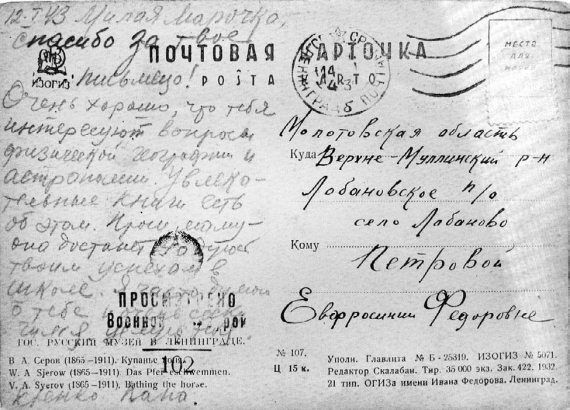 12-I 43 Милая Марочка,
спасибо за твое
письмецо!
ИЗОГИЗ
ПОЧТОВАЯ КАРТОЧКА
POŠTA KARTO
МЕСТО
ДЛЯ
МАРКИ
Очень хорошо, что тебя
интересуют вопросы
физической географии и
астрономии. Увлека-
тельные книги есть
об этом. Проси, маму-
она достанет
твоим успехам в
школе. Я часто
о тебе
Молотовская область
Куда Верхне-Муллинский р-н
Лобановское п/о
село Лобаново
Кому
Петровой
Евфросинии Федоровне
ПРОСМОТРЕНО
Военной
102
ГОС. РУССКИЙ МУЗЕЙ В ЛЕНИНГРАДЕ.
В. А. Серов (1865—1911). Купанье
W. A. Sjerow (1865—1911). Das Pferdeschwemmen.
V. A. Syerov (1865—1911). Bathing the horse.
Папа.
№ 107.
Ц 15 к.
Уполн. Главлита № Б - 25319. ИЗОГИЗ № 5071.
Редактор Скалабан. Тир. 35 000 экз. Зак. 422. 1932.
21 тип. ОГИЗа имени Ивана Федорова. Ленинград.